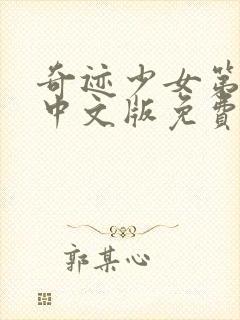 奇迹少女第
中文版免费
郭某心